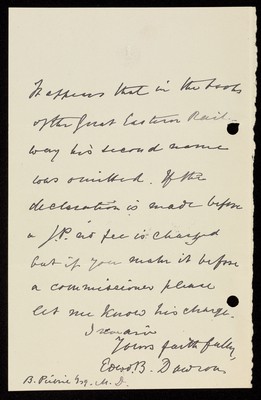 It appears that in the books
of the Great Eastern Rail-
way his second name
was omitted. If the
declaration is made before
a J.P. no fee is charged
but if you make it before
a commissioner please
let me know his charge.
I remain
Yours faithfully,
Edwd B. Dawson
B. Pierie Esq. M.D.